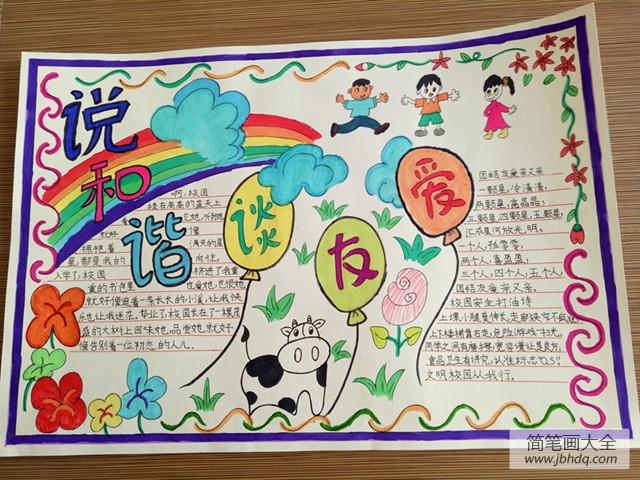 说和谐
谈友爱
啊,校园
挂在高高的蓝天上
满天的星
星,都是我的
入学了,校园
重的书包里
就好像通着一条长长的小溪,让我快
乐也让我迷茫。毕业了,校园长在了一棵茂
盛的大树上回味她,品尝她就好
像告别着一位初恋的人儿。
团结友爱亲又亲
一颗星,冷清清,
两颗星,亮晶晶,
三颗星,四颗星,五颗星,
汇成星河放光明。
一个人,孤零零,
两个人,喜盈盈,
三个人,四个人,五个人,
团结友爱亲又亲。
校园安全打油诗
上课小腿莫伸长,走廊
上下楼梯靠右走,危险游戏一扫光。
同学之间有摩擦,宽容谦让是良方,
食品卫生有讲究,认准标志"QS"
文明校园从我行。
简笔画大全
www.jbhdq.com